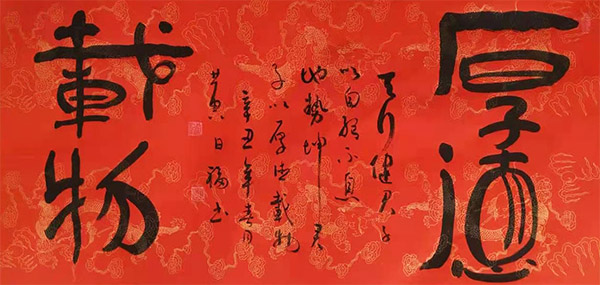 厚德
載物
天行健君子
以自强不息
地勢坤君
子以厚德載物
辛丑年春月
黄日福书